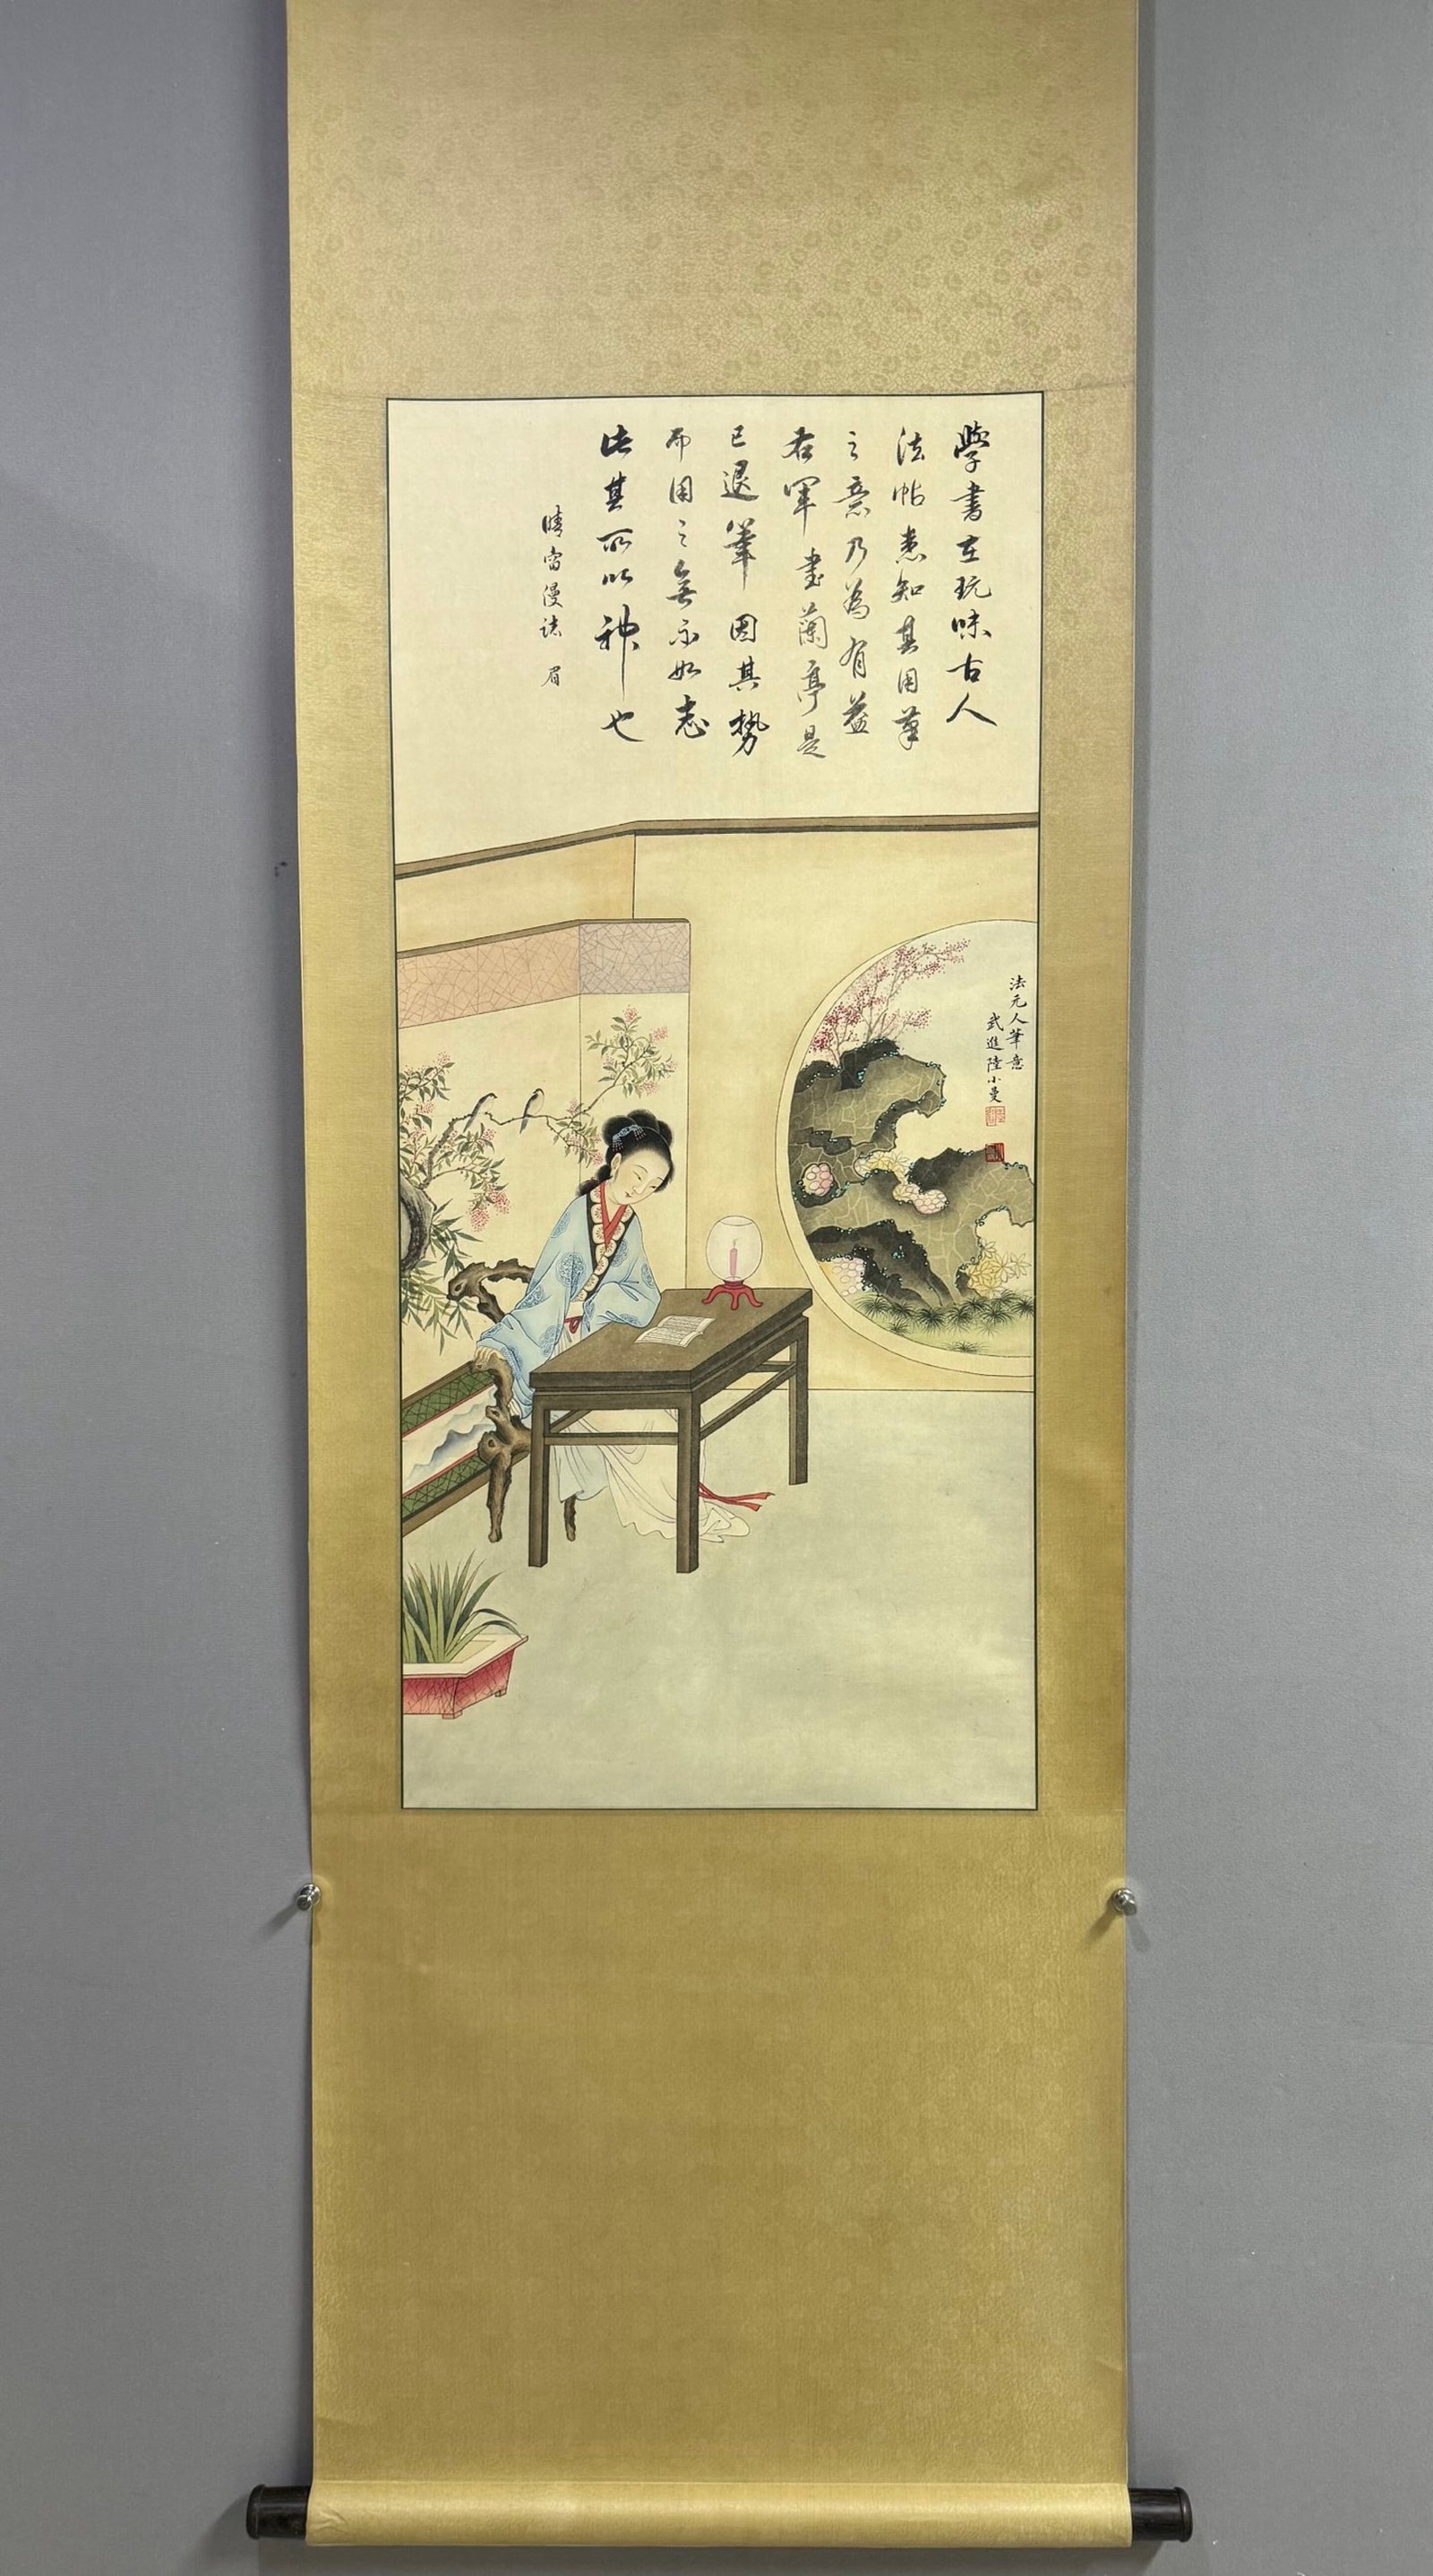 學書在玩味古人
法帖悉知其用筆
之意乃為有益
右軍書蘭亭是
已退筆因其勢
而用之無不如志
此其所以神也
晴窗漫誌 眉
法元人筆意
武進陸小曼